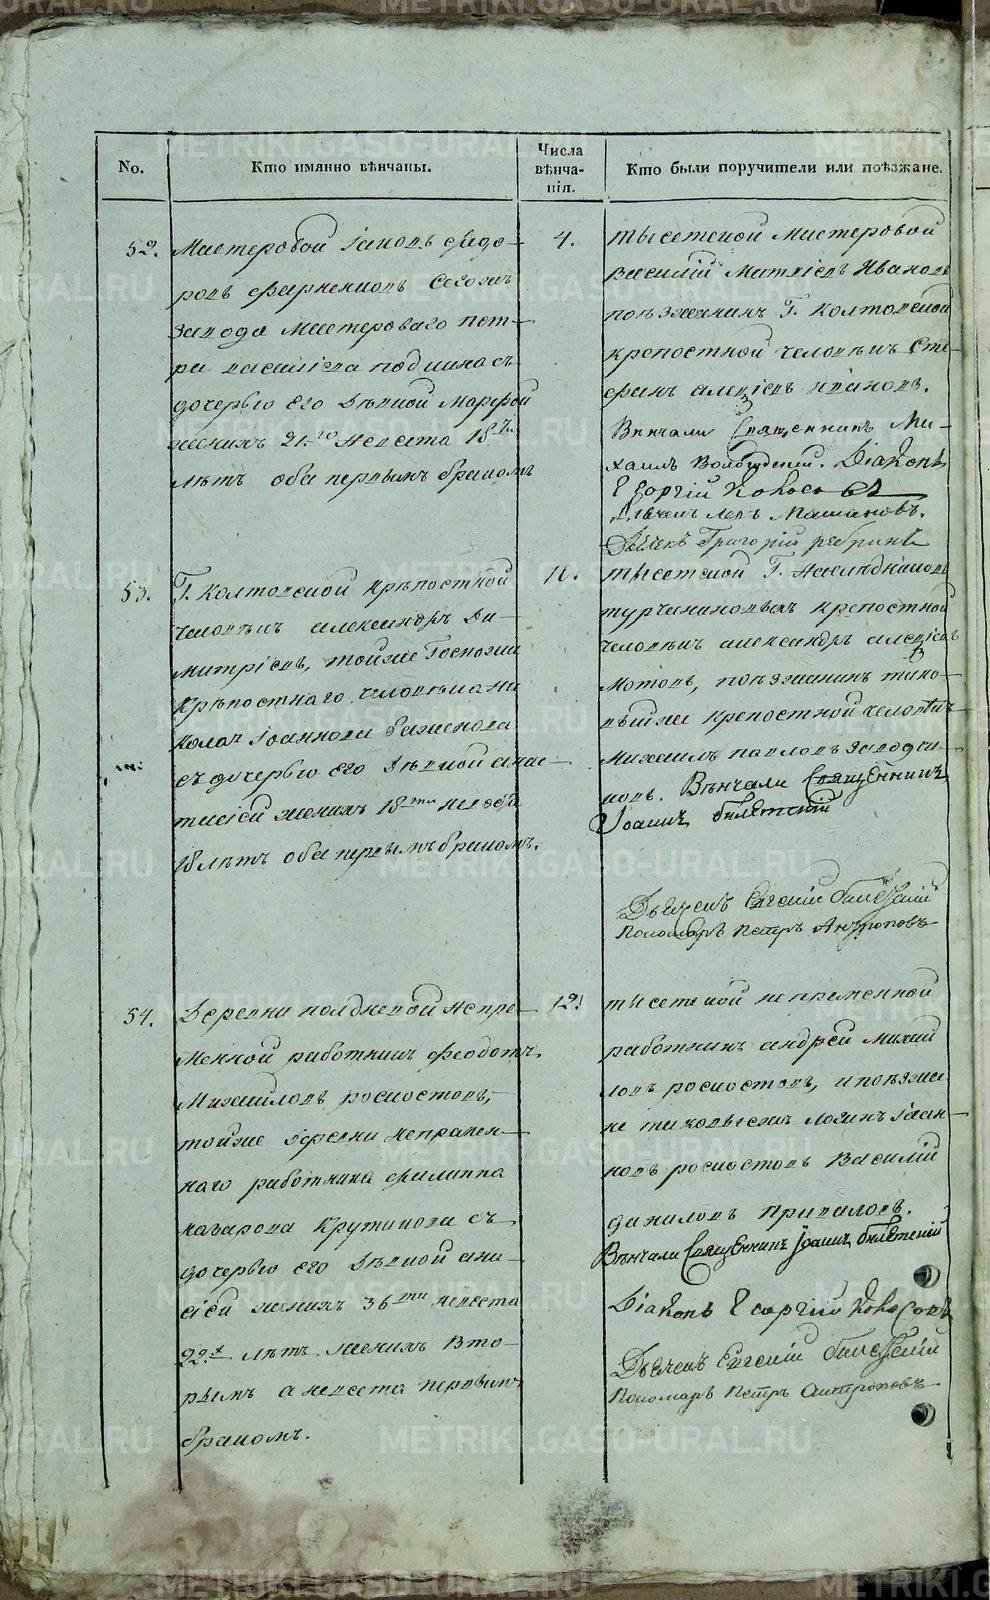 No.
Кто имянно вѣнчаны.
Числа вѣнча-нія.
Кто были поручители или поѣзжане.
52.
Мастеровой Іаковъ Сидо-
ровъ сегожъ
завода мастероваго Пет-
ра Васильева съ
дочерью его дѣвкой Марѳой
женихъ 21-го невѣста 18-ти
лѣтъ оба первымъ бракомъ
4.
тысетской мастеровой
Василій Матвѣевъ Ивановъ
поѣзжанинъ Г. Колтовской
крепостной человѣкъ Сте-
фанъ Алексѣевъ Ивановъ.
Вѣнчали Священникъ Ми-
хаилъ Діаконъ
Георгій Кокосовъ
Дьячекъ Григорій
53.
Г. Колтовской крѣпостной
человѣкъ Александръ Ди-
митріевъ, тойже Госпожи
крѣпостнаго человѣка Ни-
колая Іоаннова Баженова
съ дочерью его дѣвкой Анас-
тасіей женихъ 18ти невѣста
18 лѣтъ оба первымъ бракомъ.
10.
тысетской Г. Наслѣдниковъ
Турчаниновыхъ крепостной
человѣкъ Александръ Алексѣевъ
поѣзжанинъ тако-
выйже крепостной человѣкъ
Михаилъ Павловъ
Вѣнчали Священникъ
Іоаннъ Билетскій
Дьячекъ Евгеній Билетскій
Пономарь Петръ Антроповъ
54.
Деревни Полдневой непре-
менной работникъ Феодотъ
Михайловъ Роскостовъ,
тойже деревни непремен-
наго работника Филиппа
Назарова Крутикова съ
дочерью его дѣвкой Ани-
сіей женихъ 36ти невѣста
22х лѣтъ женихъ вто-
рымъ а невѣста первымъ
бракомъ.
12.
тысетской непременной
работникъ Андрей Михай
ловъ Роскостовъ, и поѣзжа-
не таковыежъ Логинъ Іоан-
новъ Роскостовъ Василій
Даниловъ Приваловъ.
Вѣнчали Священникъ Іоаннъ Билетскій
Діаконъ Георгій Кокосовъ
Дьячекъ Евгеній Билетскій
Пономарь Петръ Антроповъ
METRIKI.GASO-URAL.RU